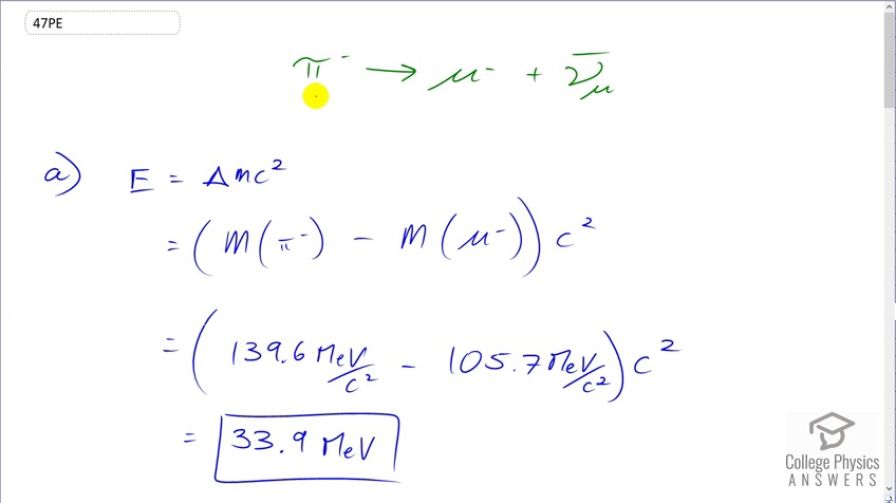 47PE
π⁻ → μ⁻ + ν̄_μ
a) E = Δmc²
= (m(π⁻) − m(μ⁻))c²
= (139.6 MeV/c² − 105.7 MeV/c²)c²
= 33.9 MeV
College Physics
ANSWERS